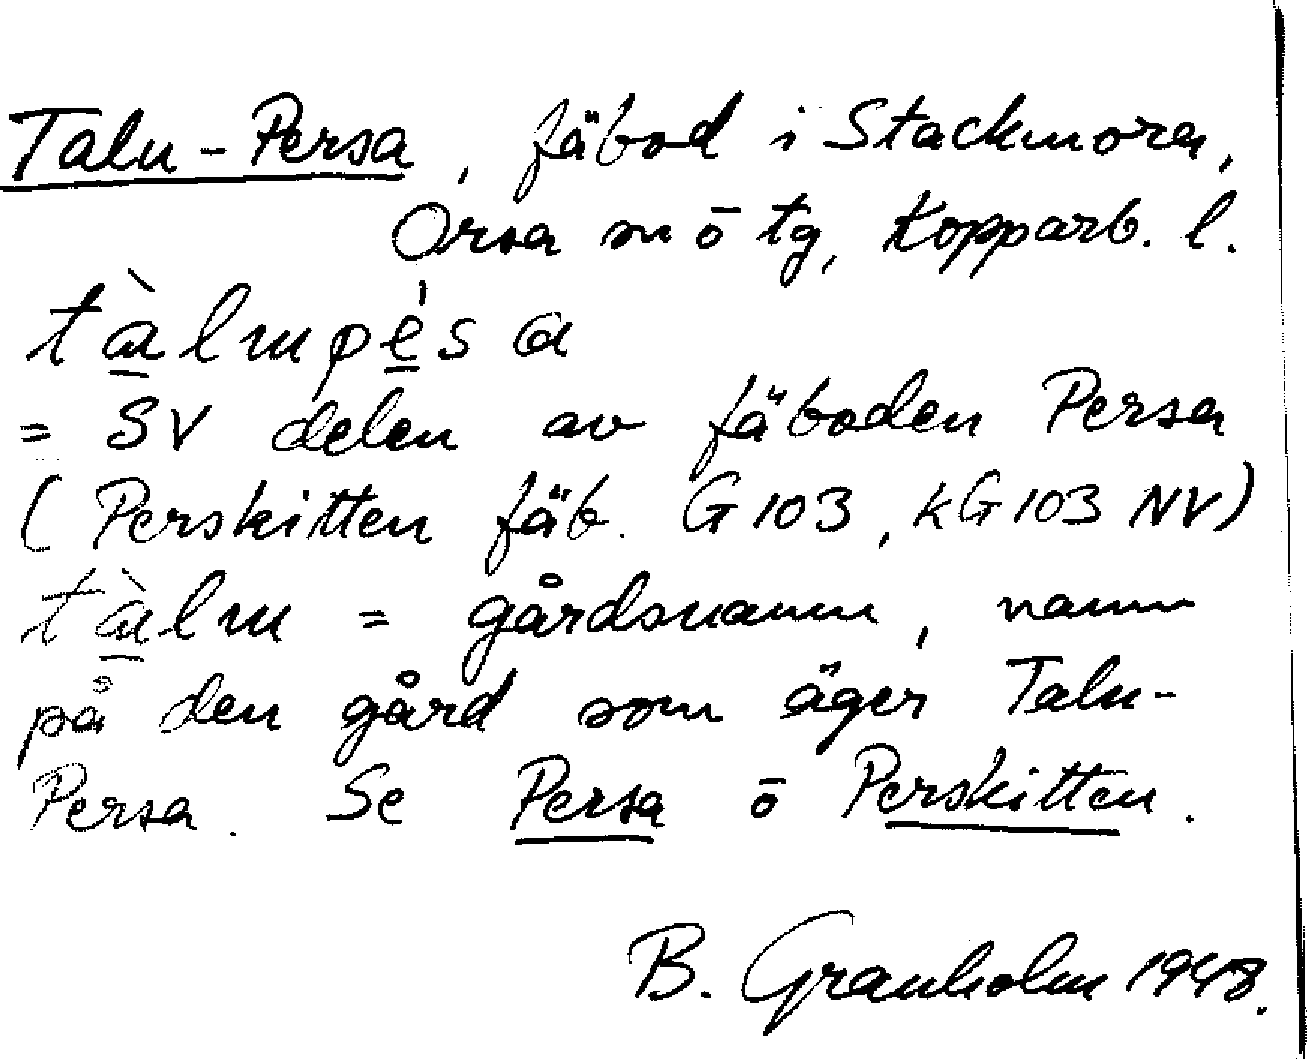 Talu-Persa, fäbod i Stackmora,
Orsa sn ō tg, Kopparb. l.
tàlupésa
= SV delen av fäboden Persa
(Perskitten fäb. G103, kG103 NV)
tàlu = gårdsnamn, namn
på den gård som äger Talu-
Persa. Se Persa ō Perskitten.
B. Granholm 1948.